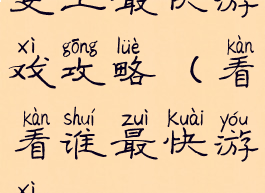 要上最快游
xì gōng lüè kàn
戏攻略（看
kàn shuí zuì kuài yóu
看谁最快游
xì